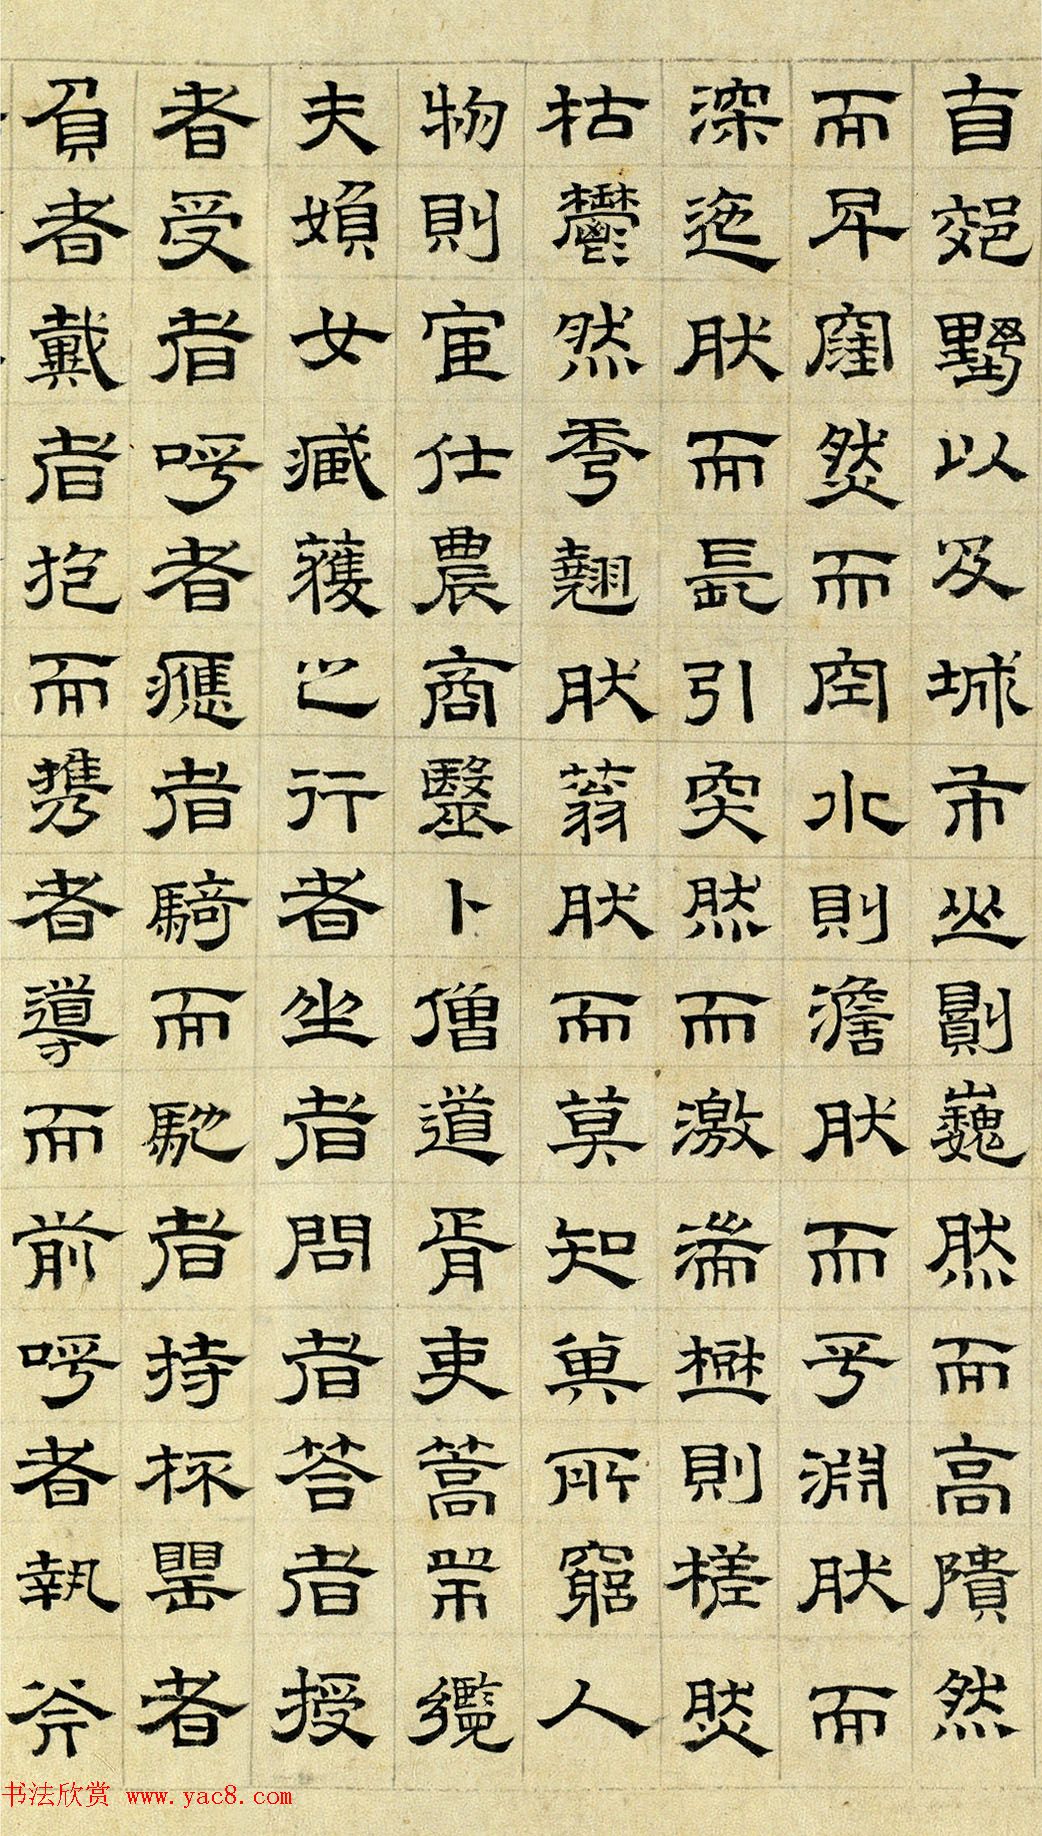 自郊野以及城市山則巍然而高隤然
而卑窪然而空水則澹然而平淵然而
深迤然而長引突然而激湍樹則槎然
枯鬱然秀翹然蓊然而莫知其所窮人
物則宦仕農商毉卜僧道胥吏篙師纜
夫婦女臧獲之行者坐者問者答者授
者受者呼者應者騎而馳者持杯罌者
負者戴者抱而携者導而前呼者執斧
书法欣赏 www.yac8.com